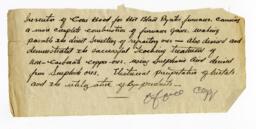 Inventor of Coke Hood for the Blast Pyritic furnace causing
a more complete combustion of furnace gases, making
possible the direct smelting of refractory ores — also devised and
demonstrated the successful Leaching Treatment of
non-Carbonate copper ores, using Sulphuric Acid derived
from Sulphide ores. Chemical precipitation of metals
and the utilization of by-products.